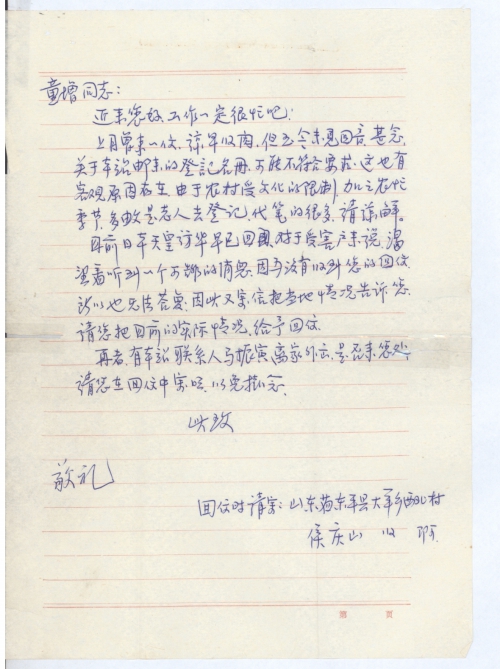 童增同志：
近来您好，工作一定很忙吧！
上月曾来一信，谅早收阅，但至今未见回音，甚念。
关于车站邮来的登记名册，可能不符合要求，这也有
客观原因存在，由于农村受文化的限制，加之农忙
季节，多数是老人去登记，代笔的很多，请谅解。
目前日本天皇访华早已回国，对于受害户来说，渴
望着听到一个可靠的消息，因为没有收到您的回信，
所以也无法答复，因此又来信把当地情况告诉您，
请您把目前的实际情况，给予回信。
再者，有车站联系人马振寅离家外出，是否来您处，
请您在回信中写明，以免挂念。
此致
敬礼
回信时请写：山东省东平县大羊乡西北村
侯庆山 收 即可
页